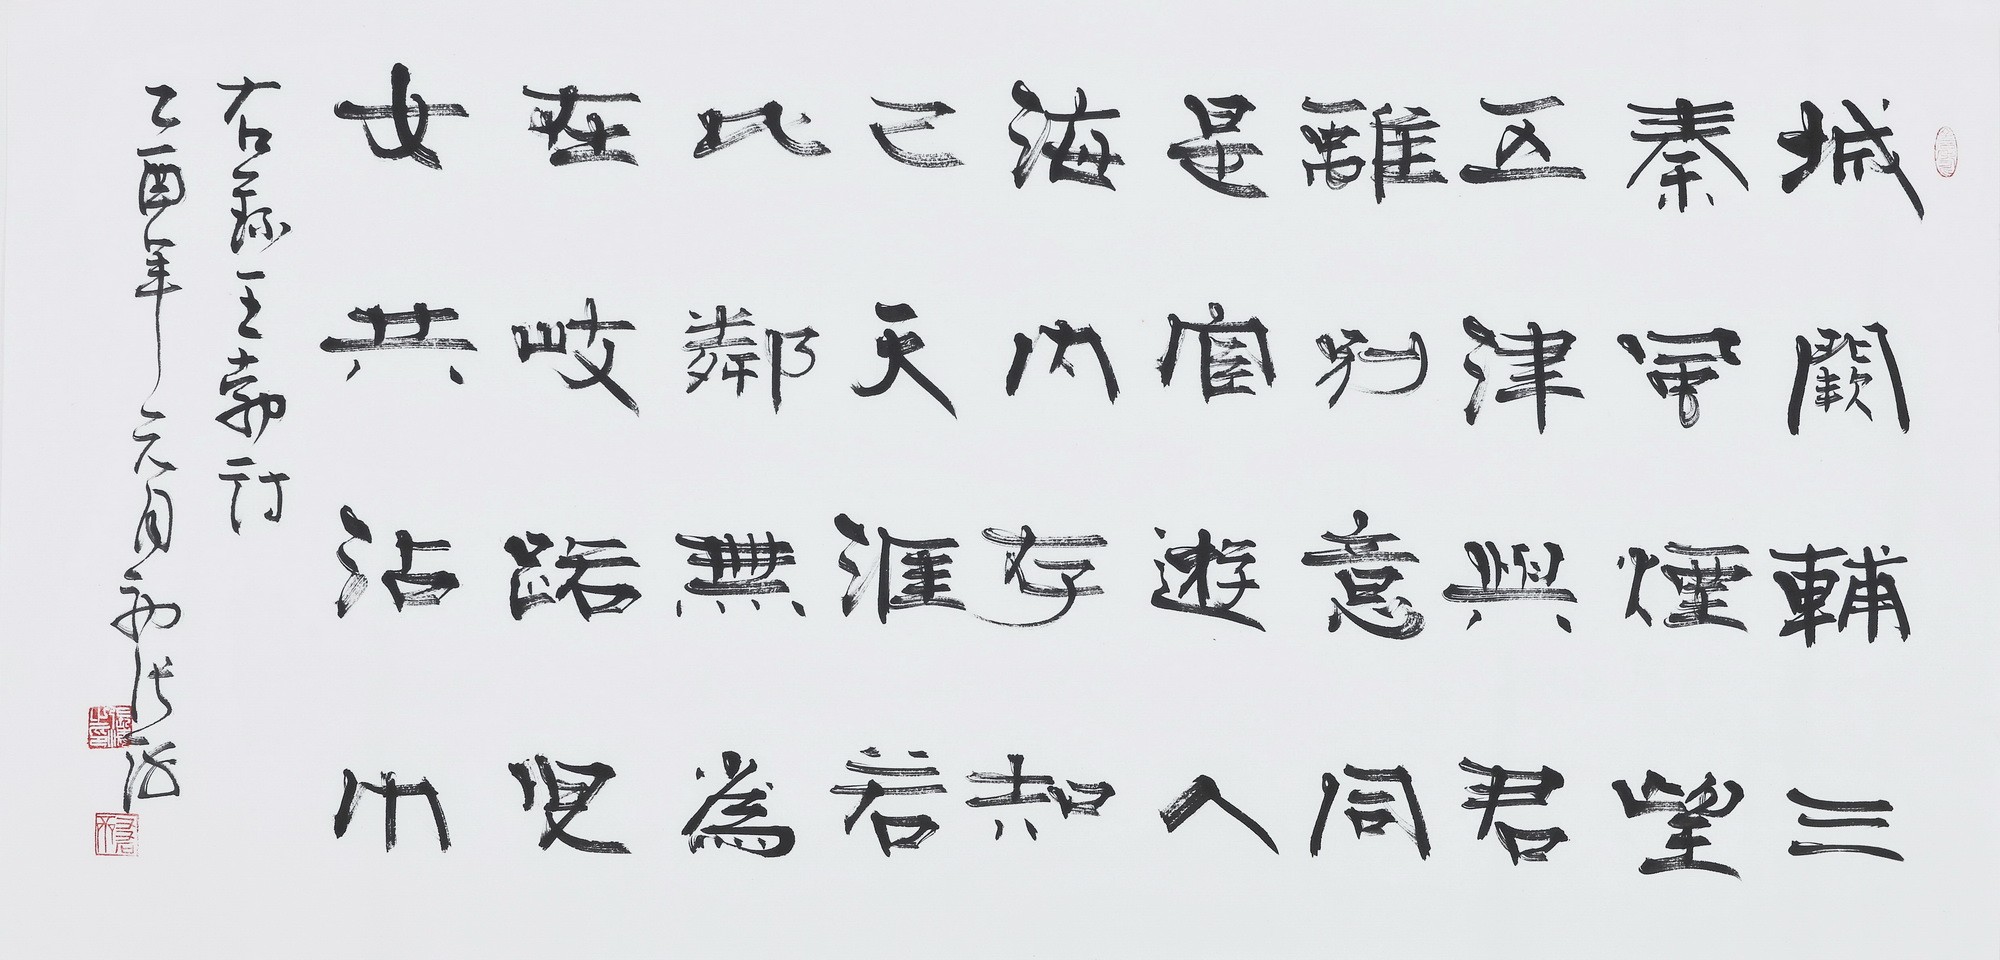 城闕輔三
秦風煙望
五津與君
離別意同
是宦遊人
海內存知
己天涯若
比鄰無為
在岐路兒
女共沾巾
右錄王勃詩
乙酉年元月初張